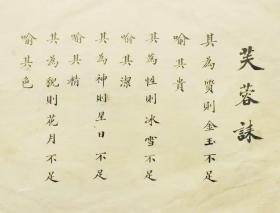 芙蓉誄
其為質則金玉不足
喻其貴
其為性則冰雪不足
喻其潔
其為神則星日不足
喻其精
其為貌則花月不足
喻其色